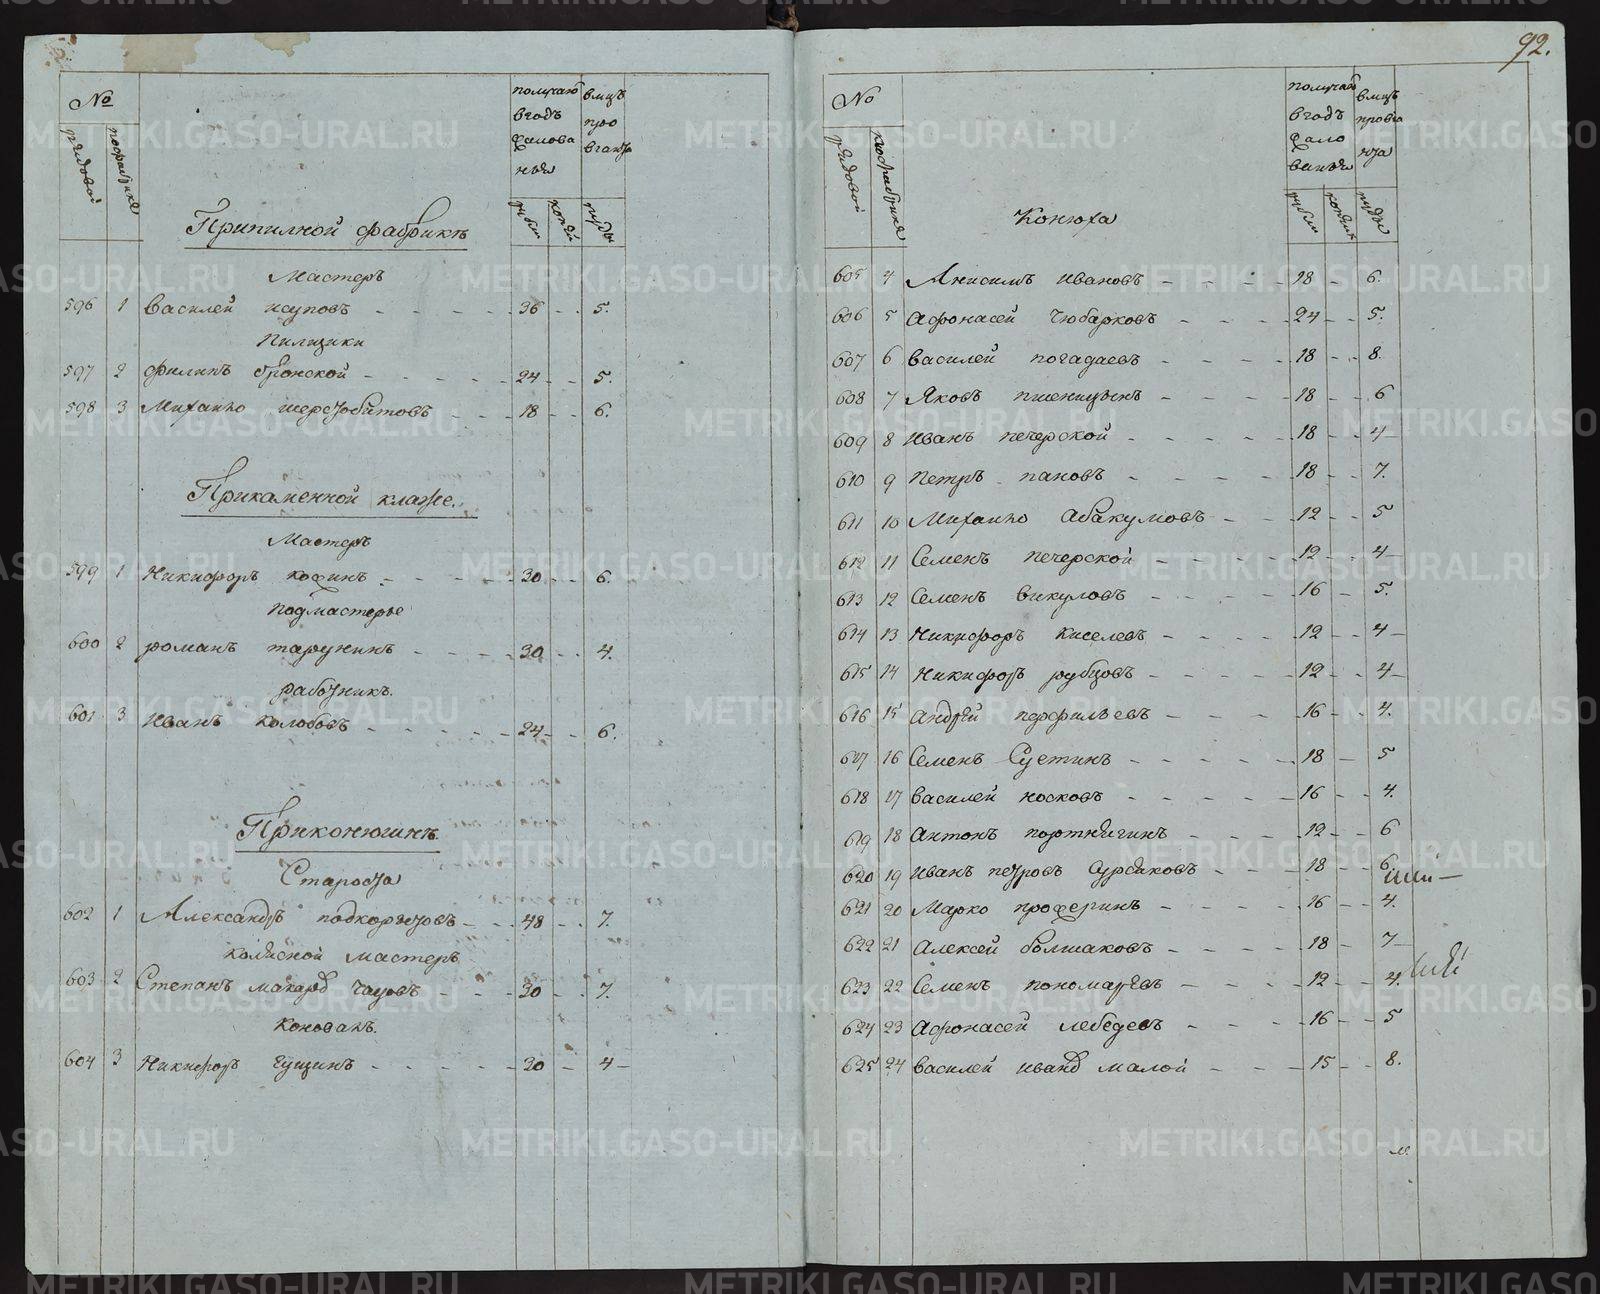 №
рядовой
пофабрике
получаю
вгодъ
жалова
нья
вмцъ
про
вганта
рубли
копей
пуды
Припилной фабрикѣ
Мастеръ
596 1 Василей исуповъ 36 5.
Пилщики
597 2 Филипъ бронской 24 5.
598 3 Михайло шерстобитовъ 18 6.
Прикаменной кладке.
Мастеръ
599 1 Никифоръ кожинъ 30 6.
подмастерье
600 2 романъ тарунинъ 30 4.
работникъ.
601 3 Иванъ колобовъ 24 6.
Приконюшнѣ
Староста
602 1 Александръ подкорытовъ 48 7.
колясной мастеръ
603 2 Степанъ макаров чаговъ 30 7.
коновалъ.
604 3 Никифоръ гущинъ 20 4
92.
№
рядовой
пофабрике
получаю
вгодъ
жало
ванья
вмцъ
провиа
нта
рубли
копѣик
пуды
Конюха
605 4 Анисимъ ивановъ 18 6.
606 5 Афонасей чюбарковъ 24 5.
607 6 Василей погадаевъ 18 8.
608 7 Яковъ пшеницынъ 18 6
609 8 Иванъ печерской 18 4
610 9 Петръ пановъ 18 7.
611 10 Михайло абакумовъ 12 5
612 11 Семенъ печерской 12 4
613 12 Семенъ викуловъ 16 5.
614 13 Никифоръ киселевъ 12 4
615 14 Никифоръ рубцовъ 12 4
616 15 Андрѣй перфильевъ 16 4.
617 16 Семенъ Суетинъ 18 5
618 17 Василей носковъ 16 4.
619 18 Антонъ портнягинъ 12 6
620 19 Иванъ петровъ Сурсяковъ 18 6.
621 20 Марко проферинъ 16 4.
622 21 Алексей болшаковъ 18 7
623 22 Семенъ пономаревъ 12 4.
624 23 Афонасей лебедевъ 16 5
625 24 Василей иванов малой 15 8.
METRIKI.GASO-URAL.RU